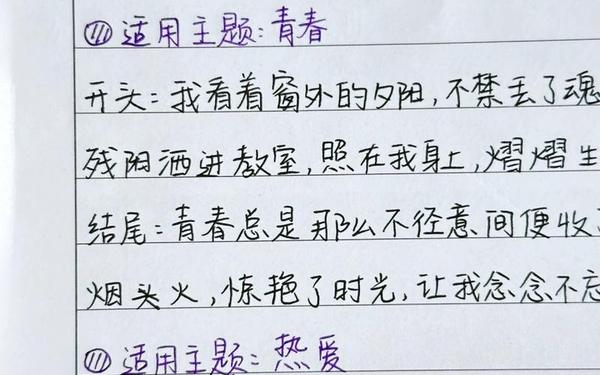 ⑪适用主题:青春
开头:我看着窗外的夕阳,不禁丢了魂
残阳洒进教室,照在我身上,熠熠生
结尾:青春总是那么不径意间便收
烟头火,惊艳了时光,让我念念不忘
⑪适用主题:热爱